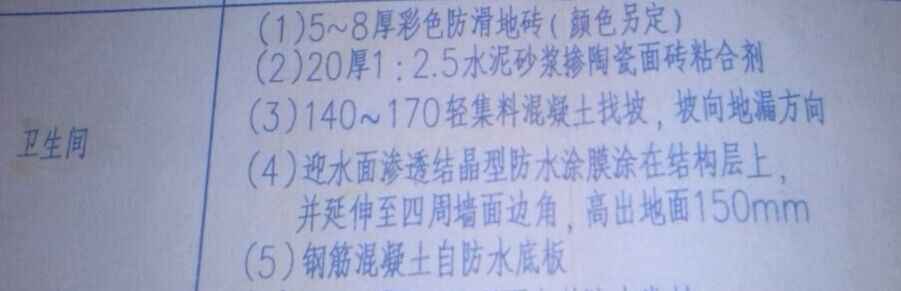 (1)5~8厚彩色防滑地砖(颜色另定)
(2)20厚1:2.5水泥砂浆掺陶瓷面砖粘合剂
(3)140~170轻集料混凝土找坡,坡向地漏方向
卫生间
(4)迎水面渗透结晶型防水涂膜涂在结构层上,
并延伸至四周墙面边角,高出地面150mm
(5)钢筋混凝土自防水底板